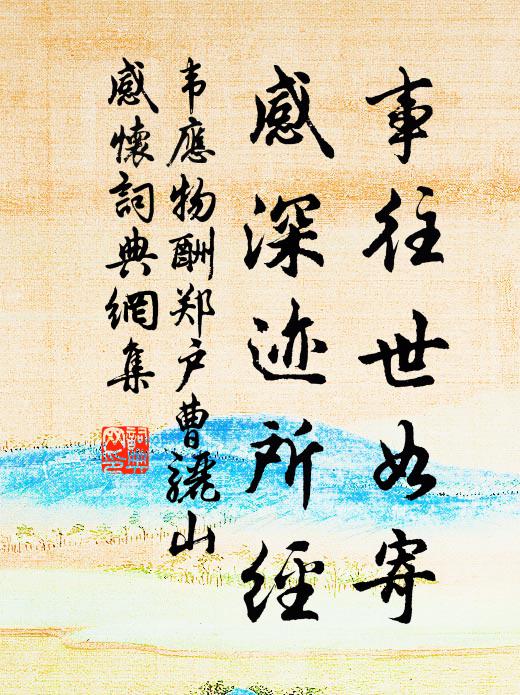 事往世如寄
感深迹所經
韦應物酬郑户曹驪山
感懷詞典網集